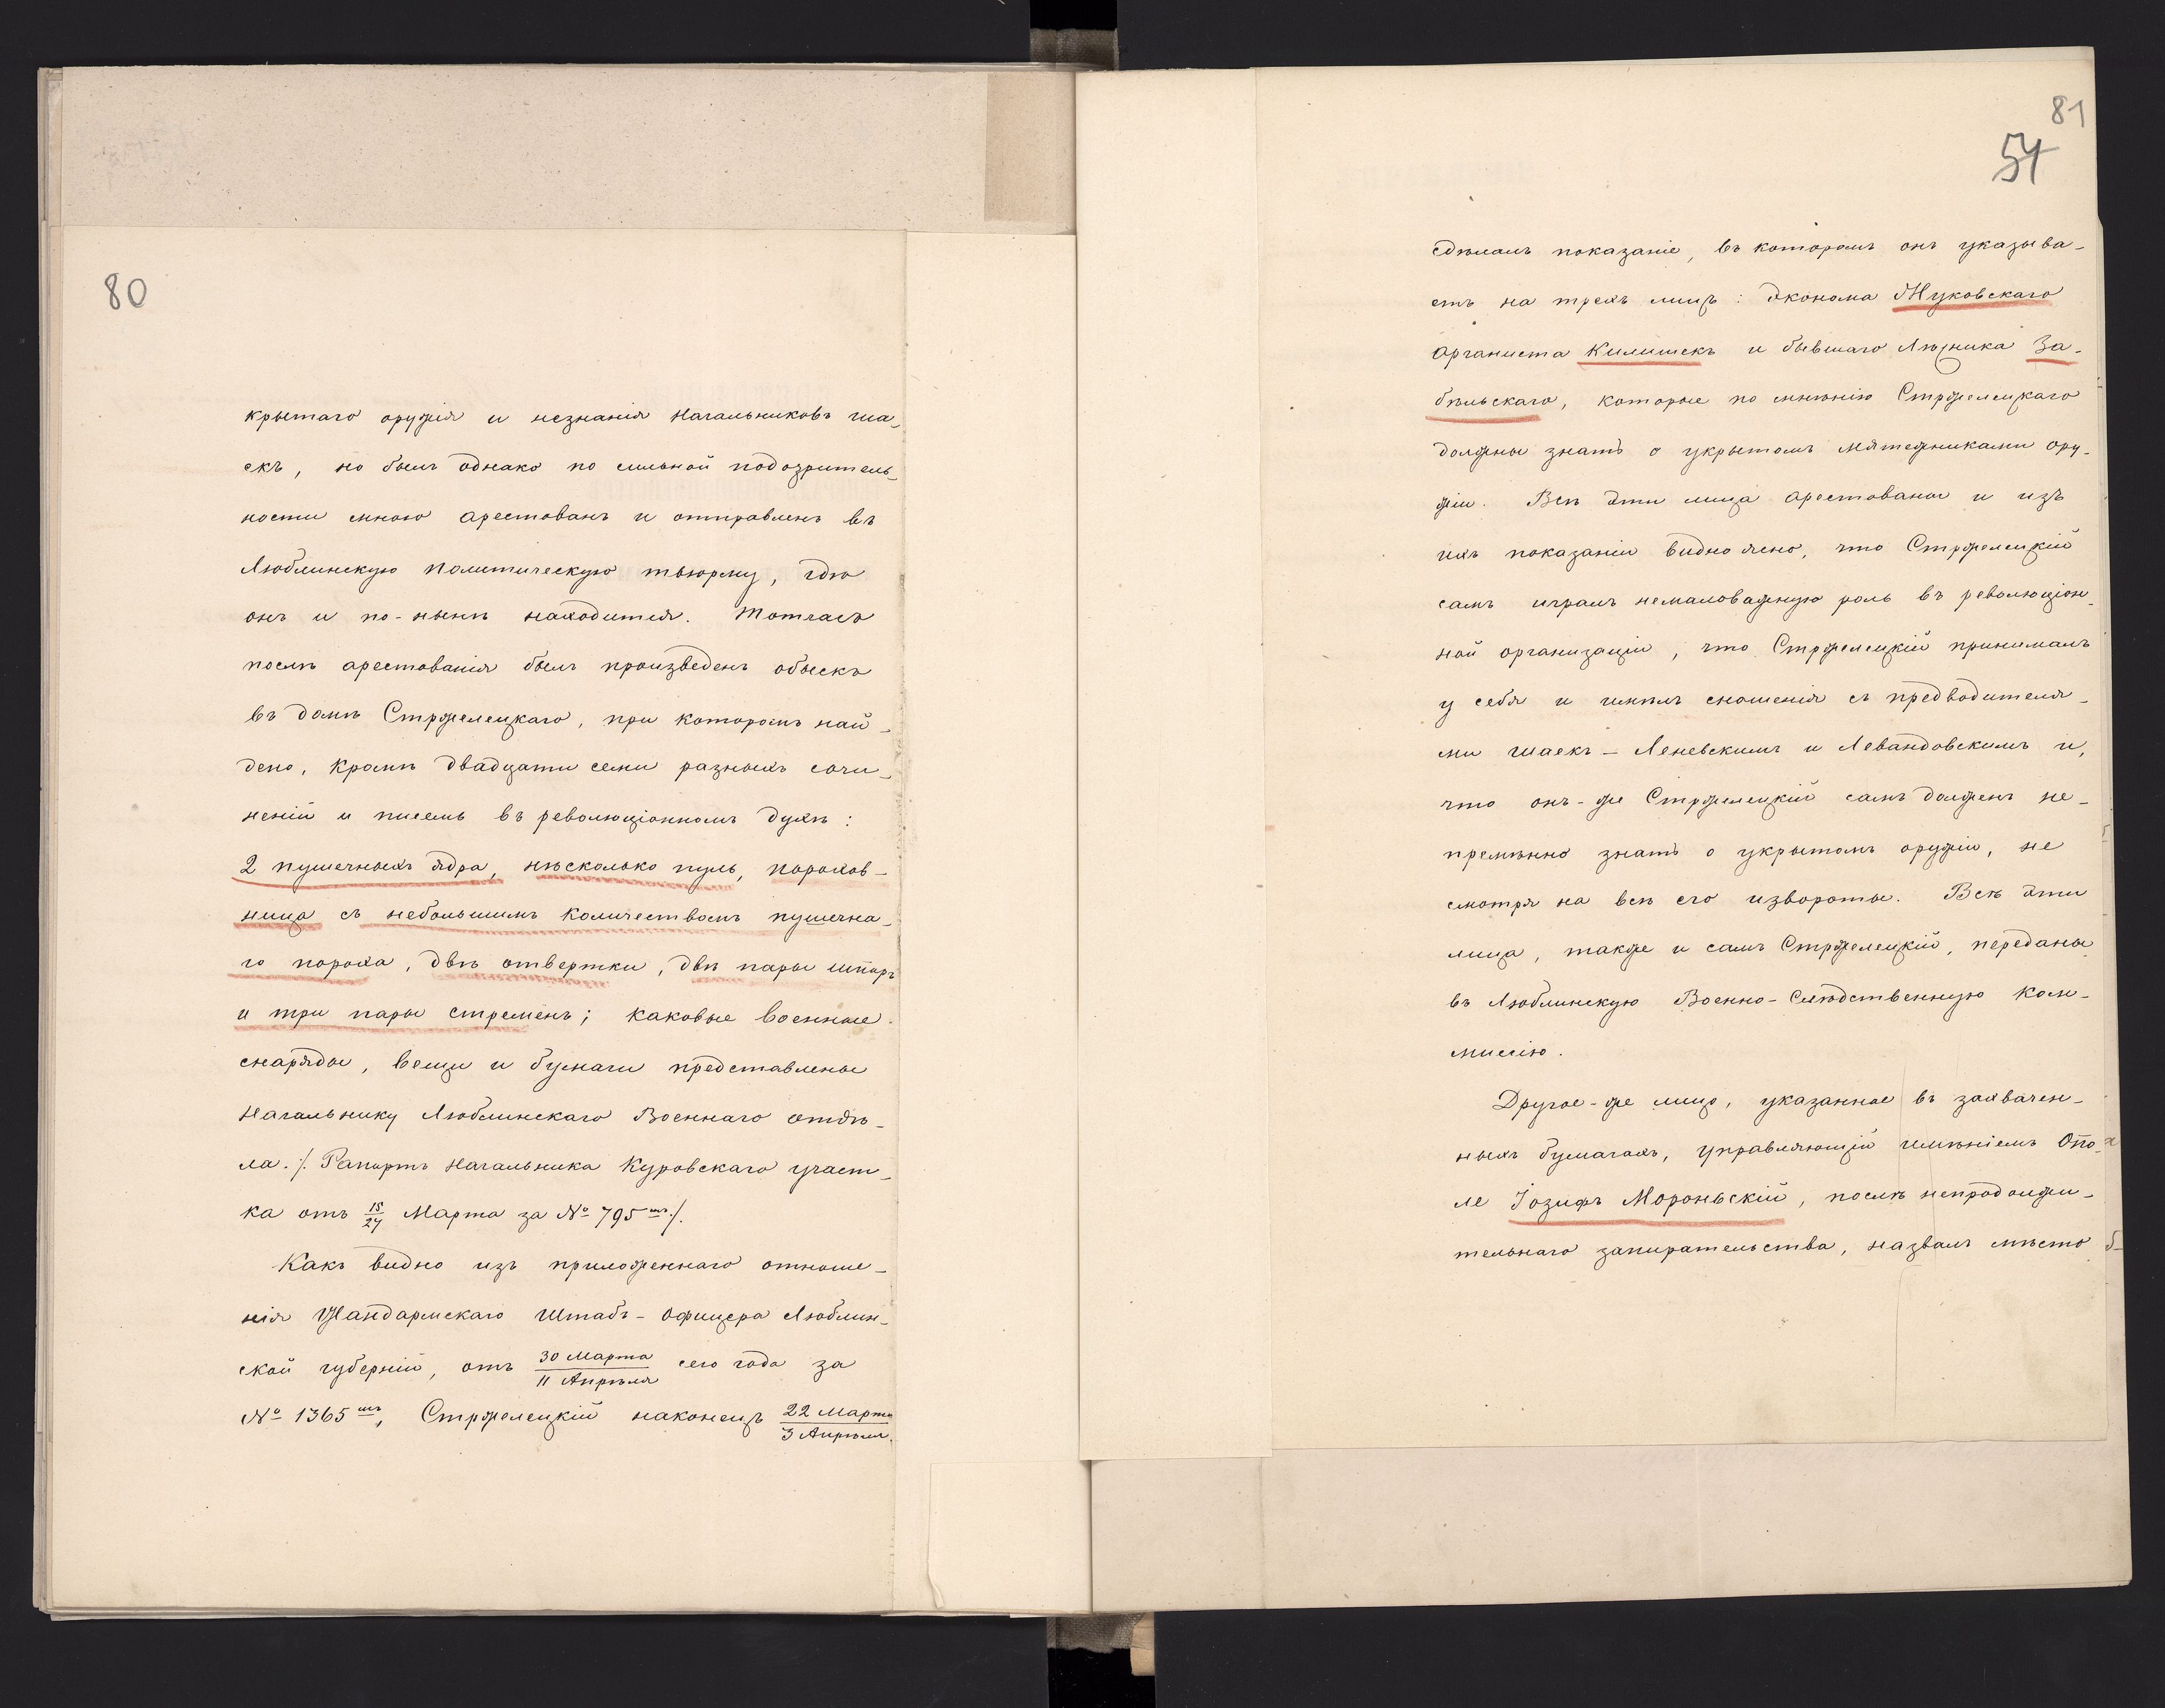 80
крытаго оружія и незнанія Начальниковъ ша-
екъ, но былъ однако по сильной подозритель-
ности мною арестованъ и отправленъ въ
Люблинскую политическую тьюрму, гдѣ
онъ и по-нынѣ находится. Тотчасъ
послѣ арестованія былъ произведенъ обыскъ
въ домѣ Стржелецкаго, при которомъ най-
дено, кромѣ двадцати семи разныхъ сочи-
неній и писемъ въ революціонномъ духѣ:
2 пушечныхъ ядра, нѣсколько пуль, порохов-
ница съ небольшимъ количествомъ пушечна-
го пороха, двѣ отвертки, двѣ пары шпоръ
и три пары стременъ; каковые военные
снаряды, вещи и бумаги представлены
Начальнику Люблинскаго Военнаго отдѣ-
ла. /. Рапортъ Начальника Куровскаго участ-
ка отъ 15/27 Марта за № 795 мъ /.
Какъ видно изъ приложеннаго отноше-
нія Жандармскаго Штабъ-Офицера Люблин-
ской губерніи, отъ 30 Марта/11 Апрѣля сего года за
№ 1365 мъ, Стржелецкій наконецъ 22 Марта/3 Апрѣля
81
54
сдѣлалъ показаніе, въ которомъ онъ указыва-
етъ на трехъ лицъ: эконома Жуковскаго
Органиста Килишекъ и бывшаго Лѣсника За-
бѣльскаго, которые по мнѣнію Стржелецкаго
должны знать о укрытомъ мятежниками ору-
жіи. Всѣ эти лица арестованы и изъ
ихъ показаніи видно ясно, что Стржелецкій
самъ игралъ немаловажную роль въ революціон-
ной организаціи, что Стржелецкій принималъ
у себя и имѣлъ сношенія съ предводителя-
ми шаекъ - Леневскимъ и Левандовскимъ и,
что онъ-же Стржелецкій самъ долженъ не-
премѣнно знать о укрытомъ оружіи, не
смотря на всѣ его извороты. Всѣ эти
лица, также и самъ Стржелецкій, переданы
въ Люблинскую Военно-Слѣдственную Ком-
мисію.
Другое-же лицо, указанное въ захвачен-
ныхъ бумагахъ, Управляющій имѣніемъ Опо-
ле Іозифъ Мороньскій, послѣ непродолжи-
тельнаго запирательства, назвалъ мѣсто